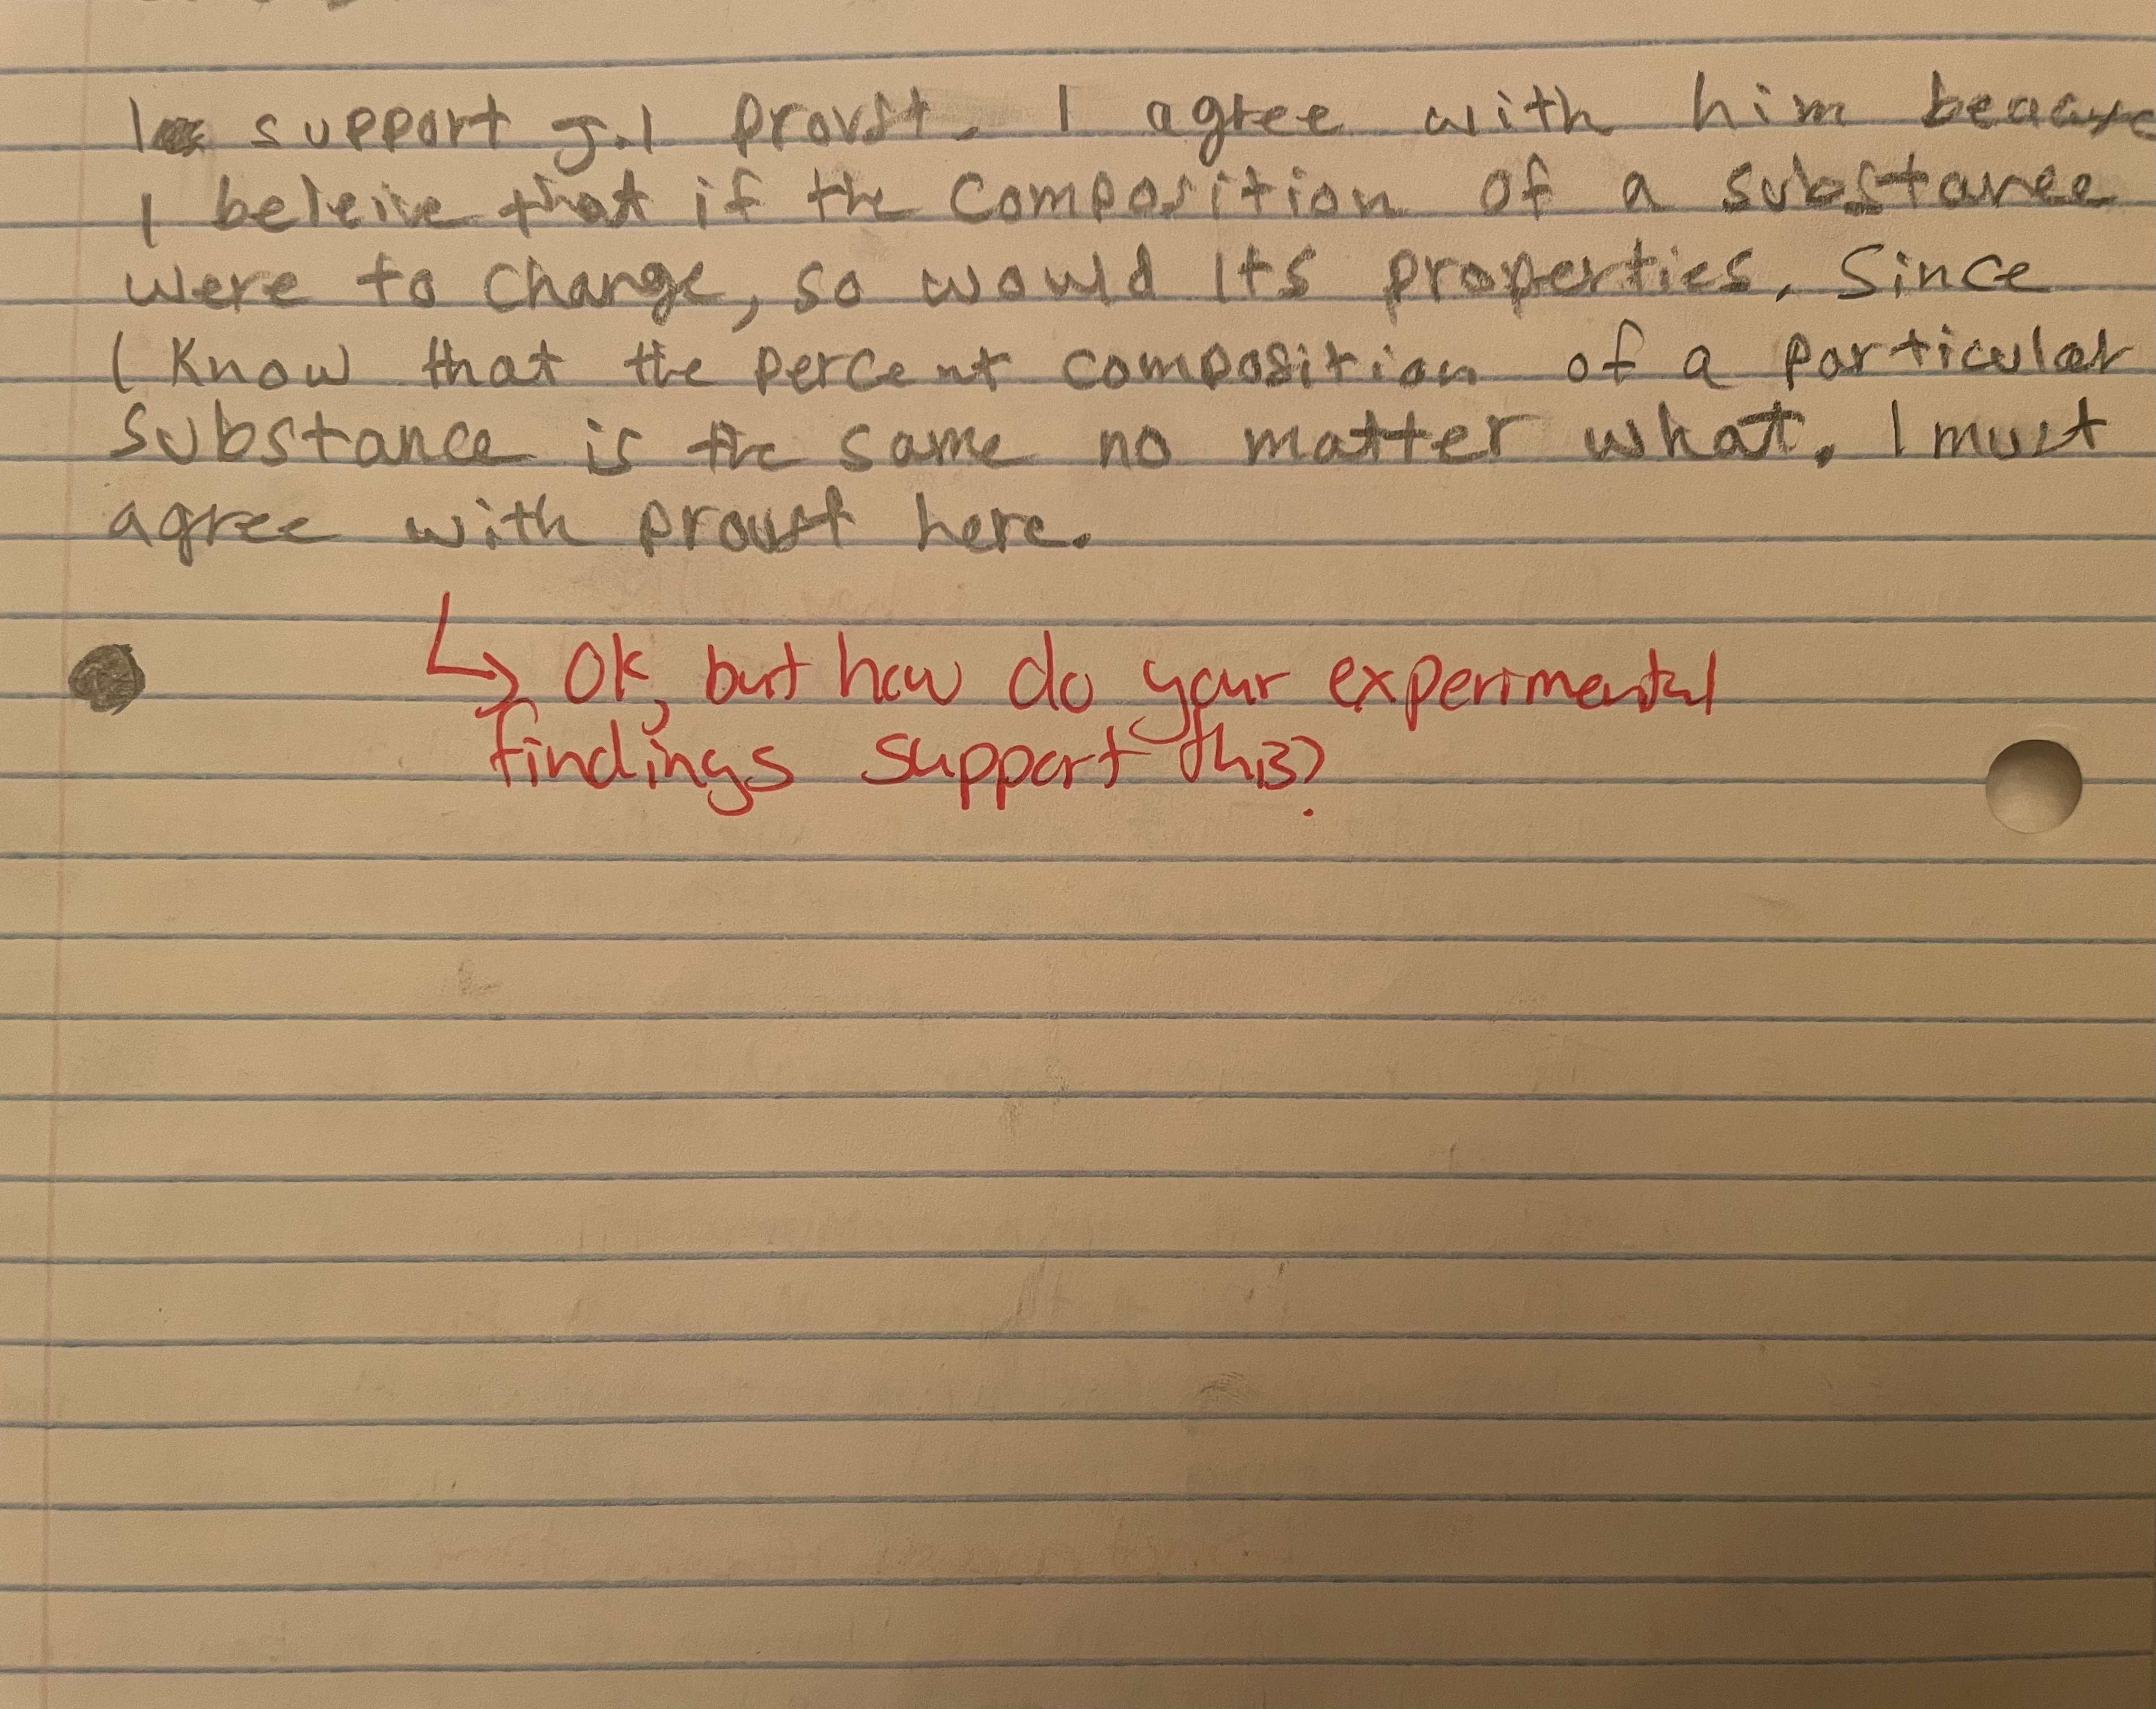 I support J.l Proust. I agree with him because
I beleive that if the composition of a substance
were to change, so would its properties. Since
I know that the percent composition of a particular
substance is the same no matter what, I must
agree with proust here.
↳ OK, but how do your experimental
findings support this?